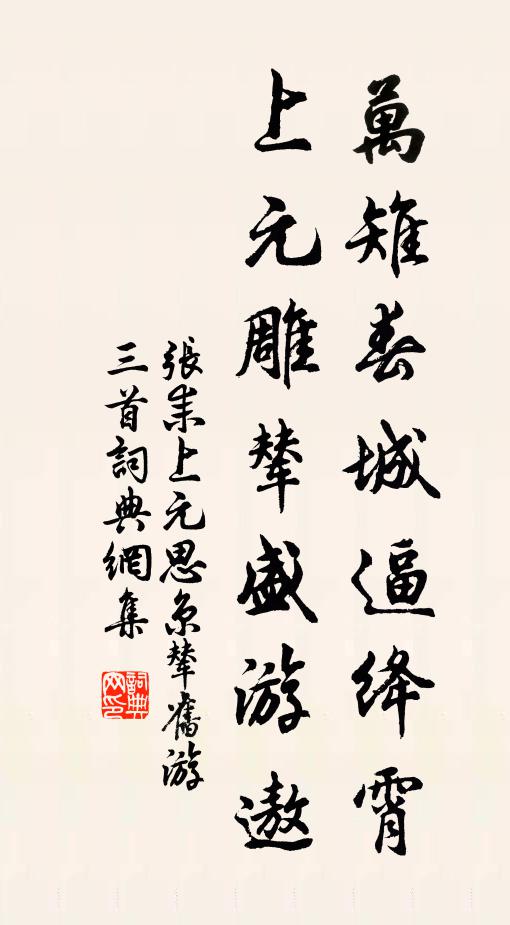 萬雉春城逼絳霄
上元雕輦盛游遨
張耒上元思京輦舊游
三首詞典網集
詞典網印